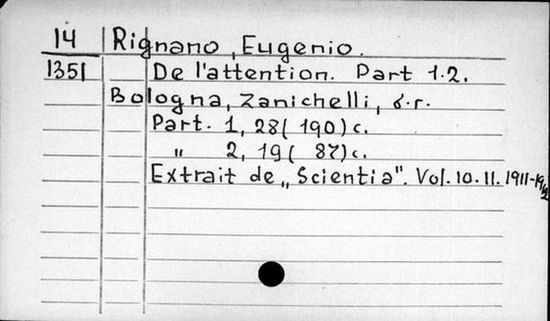 14 Rignano, Eugenio.
1351 De l'attention. Part 1.2.
Bologna, Zanichelli, б.г.
Part. 1, 28( 190)с.
„ 2, 19( 87)с.
Extrait de „Scientia". Vol. 10.11. 1911-19/12